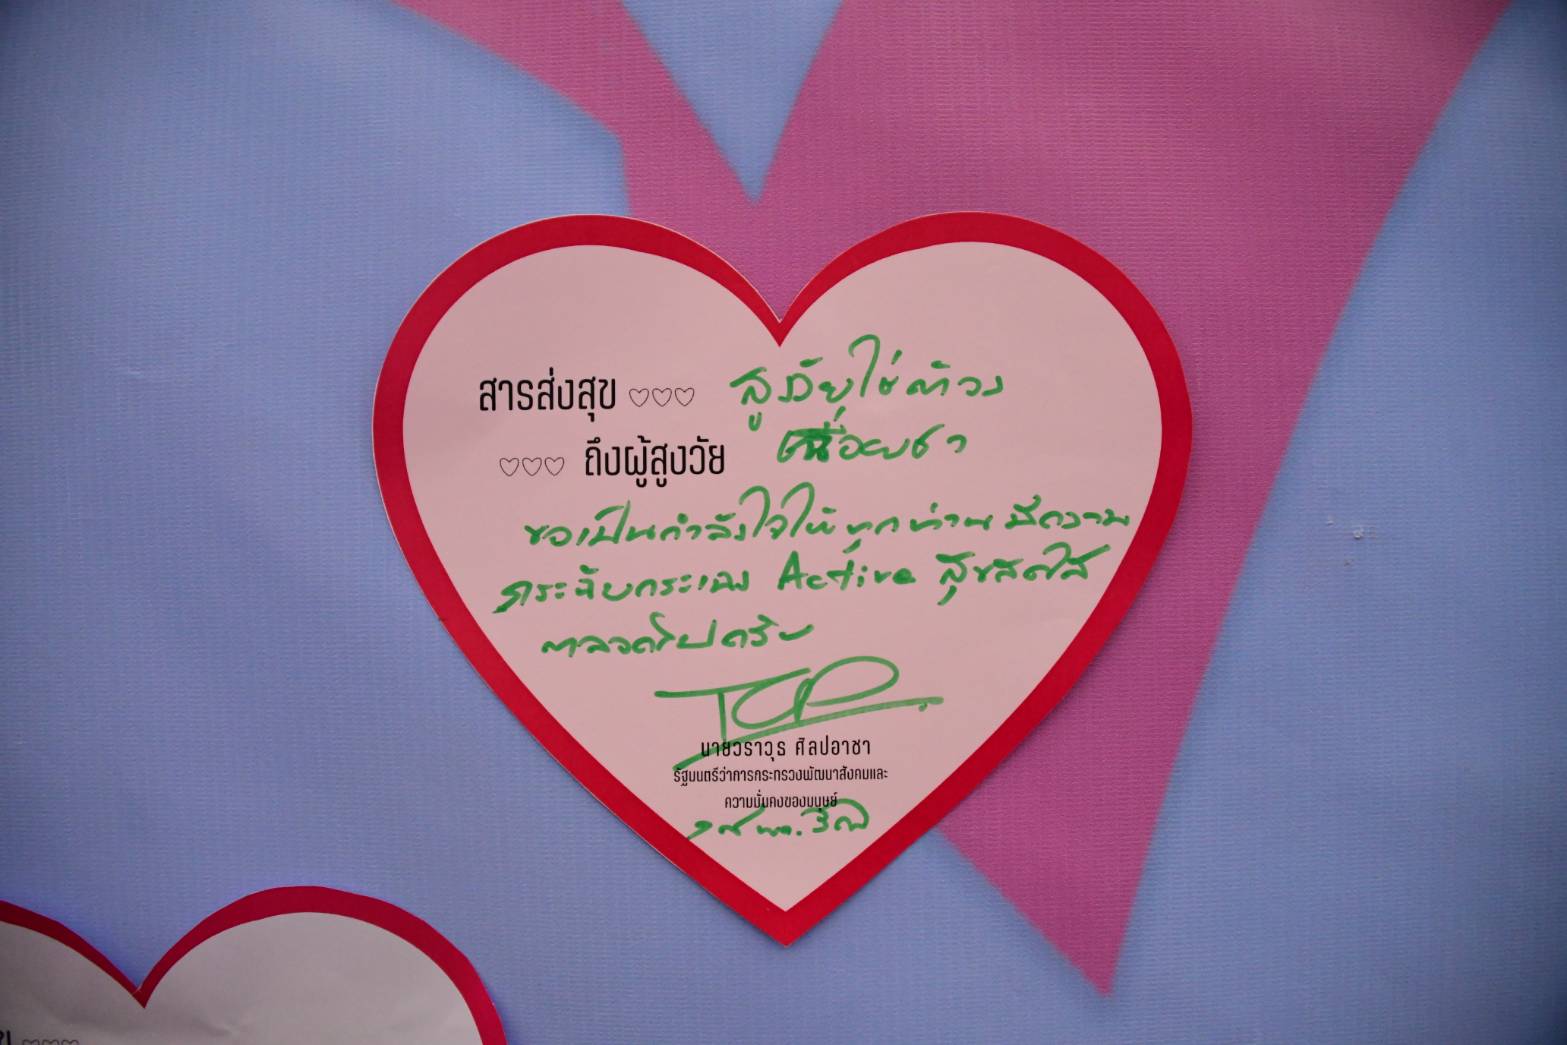 สารส่งสุข ♡♡♡
♡♡♡ ถึงผู้สูงวัย
สูงวัยใช่ต้อง
เฉื่อยชา
ขอเป็นกำลังใจให้ทุกท่าน มีความ
กระฉับกระเฉง Active สุขสดใส
ตลอดไปครับ
TCP
นายวราวุธ ศิลปอาชา
รัฐมนตรีว่าการกระทรวงพัฒนาสังคมและ
ความมั่นคงของมนุษย์
♡♡♡